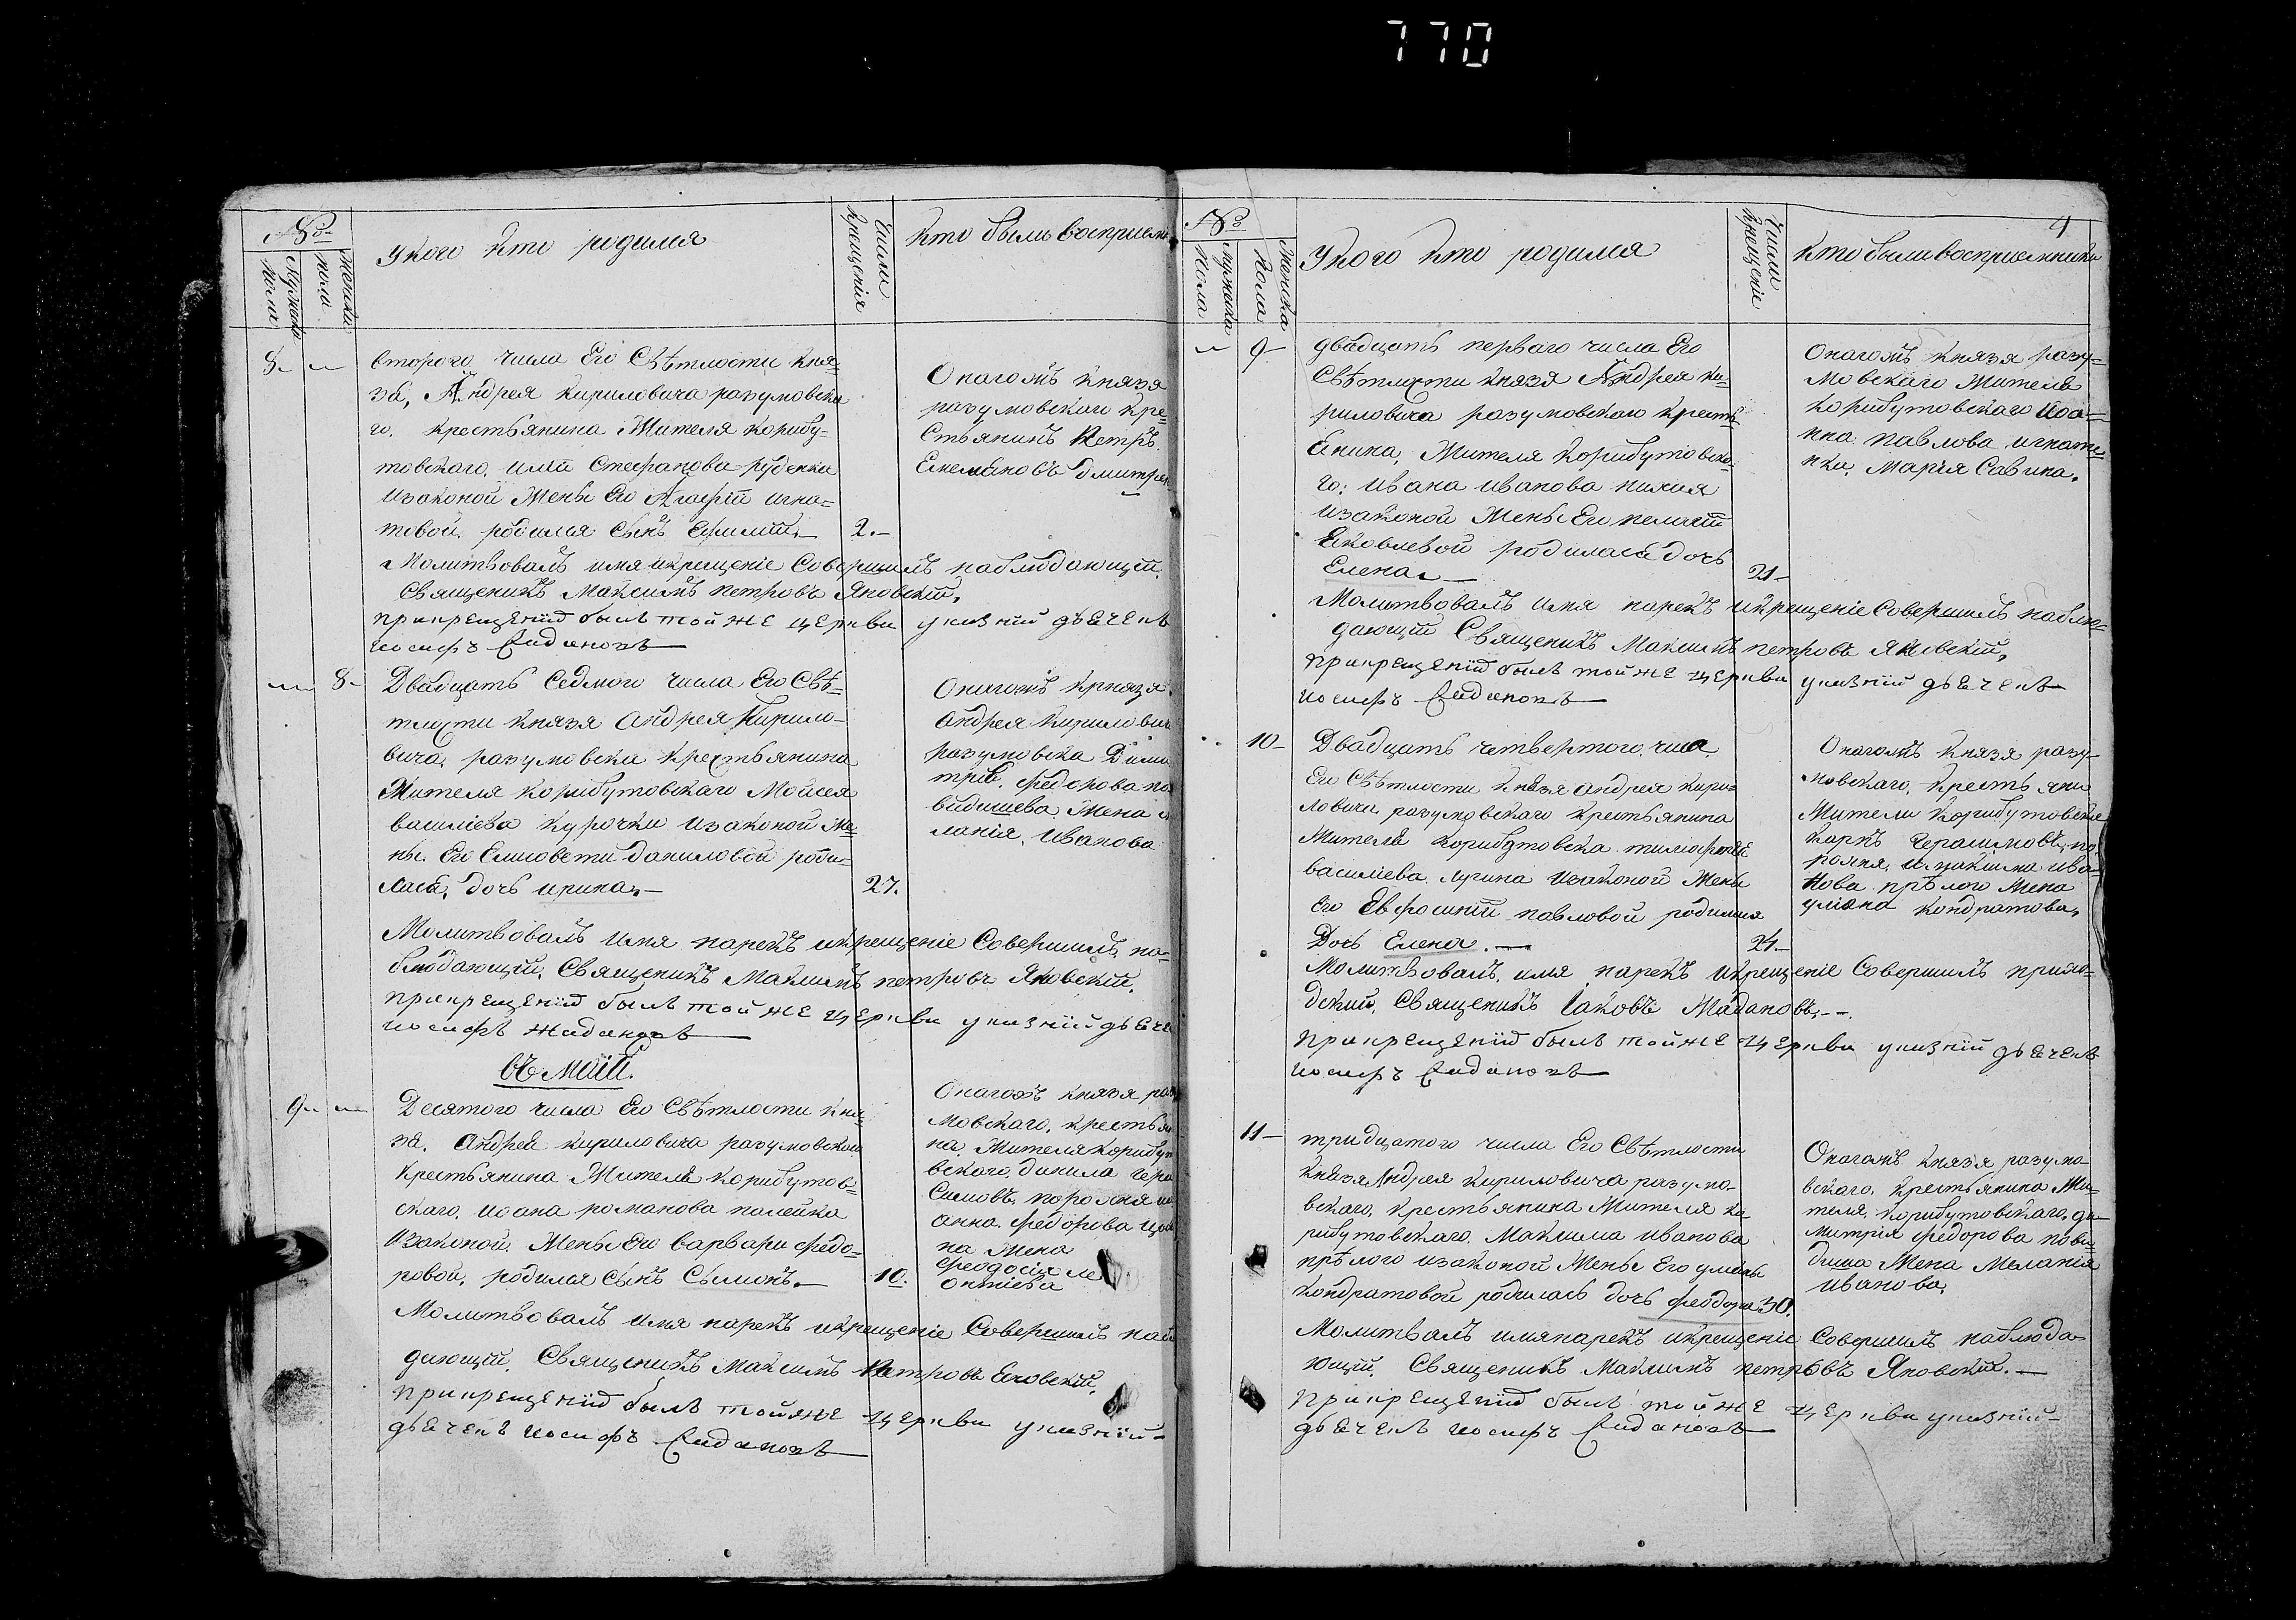 770
№
Мужеска пола
женска пола
У кого кто родился
Число крещенія
Кто были восприем
8
второго числа Его Свѣтлости Кня=
зя, Андрея Кириловича разумовска
го. крестьянина Жителя корибу=
товскаго, Стефанова руденка
изаконой Жены Его Агафіи игна=
товой, родился Сынъ
2.
Опагомъ Князя
разумовскаго Кре=
стьянинъ Петръ
Молитвовалъ имя икрещеніе Совершилъ наблюдающій.
Священикъ Максимъ петровъ Яновскій,
прикрещеніи былъ той же церкви указній дьячекъ
иосифъ Жадановъ
8
Двадцать Седмого числа Его Свѣ=
тлости Князя андрея Кирило=
вича, разумовска Крестьянина
Жителя Корибутовскаго Мойсея
василіева курочки изаконой Же=
ны. Его Елисовети даниловой роди=
лася, дочь ирина,
27.
Опагомъ Князя
андрея Кирилович
разумовска Дими
трія, федорова по
видишева Жена м
ланія, иванова
Молитвовалъ имя нарекъ икрещеніе Совершилъ, на=
блюдающій, Священикъ Максимъ петровъ Яновскій,
прикрещеніи былъ той же церкви указній дьяче
иосифъ Жадановъ
въ маіи.
9
Десятого числа Его Свѣтлости Кня=
зя. андрея кириловича разумовскаго
Крестьянина Жителя Корибутов=
скаго, иоана романова
изаконой, Жены Его варвари федо=
ровой, родился Сынъ Сѵмеонъ.
10.
Опагомъ Князя раз
мовскаго, крестьян
на, Жителя Корибут
вскаго, данила Гера
симовъ, порохня
анна федорова
на Жена
феодосія ле
онтіева
Молитвовалъ имя нарекъ икрещеніе Совершилъ наб
дающій, Священикъ Максимъ Петровъ Яновскій,
прикрещеніи былъ тойже церкви указній=
дьячекъ иосифъ Жадановъ
4
№
мужеска пола
Женска пола
У кого кто родился
Число Крещеніе
Кто были восприемники
9
двадцать перваго числа Его
Свѣтлости Князя Андрея Ки=
риловича разумовскаго Кресть=
янина, Жителя Корибутовска=
го; ивана иванова
изаконой Жены Его пелагіи
Яковлевой родилася дочь
Елена
21
Опагомъ Князя разу=
мовскаго Жителя
Корибутовскаго иоа=
нна павлова
Марія Савина.
Молитвовалъ имя нарекъ икрещеніе Совершилъ наблю=
дающій Священикъ Максимъ петровъ Яновскій,
прикрещеніи былъ той же церкви указній дьячекъ
иосифъ Жадановъ
10
Двадцать четвертого, числа
Его Свѣтлости Князя андрея Кири=
ловича разумовскаго Крестьянина
Жителя Корибутовска тимофея
василіева изаконой Жены
Его Евфосиніи павловой родилися
Дочь Елена.
24.
Опагомъ Князя разу=
мовскаго, Крестьяни
Жители Корибутовские
Карпъ Герасимовъ, по
рохня, и максима ива=
нова Жена
уліана кондратова,
Молитвовалъ, имя нарекъ икрещеніе Совершилъ прихо=
дский, Священикъ Іаковъ Жадановъ.
прикрещеніи былъ тойже церкви указній дьячекъ
иосифъ Жадановъ
11
тридцатого числа Его Свѣтлости
Князя Андрея Кириловича разумо=
вскаго, крестьянина Жителя ко
рибутовскаго, Максима иванова
изаконой Жены Его уляны
Кондратовой родилась дочь феодора 30.
Опагомъ Князя разумо=
вскаго, Крестьянина Жи=
теля, Корибутовскаго, ди
митрія федорова пови=
диша Жена Меланія
иванова,
Молитвалъ имянарекъ икрещеніе Совершилъ наблюда=
ющій, Священикъ Максимъ петровъ Яновскій.
прикрещеніи былъ той же церкви указній=
дьячекъ иосифъ Жадановъ